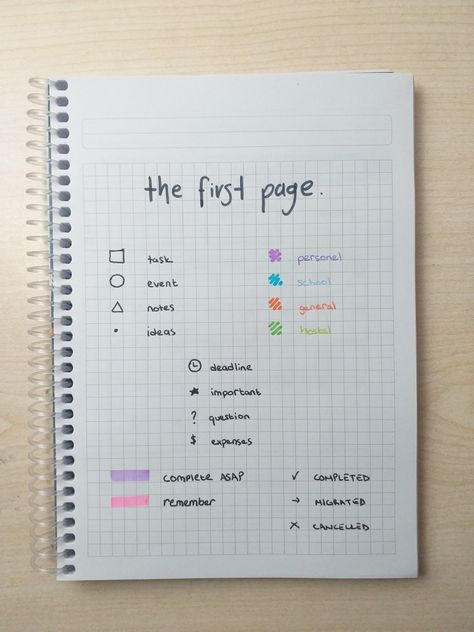 the first page.
task
event
notes
ideas
personel
school
general
hostel
deadline
important
? question
$ expenses
complete ASAP
remember
✓ COMPLETED
→ MIGRATED
✗ CANCELLED